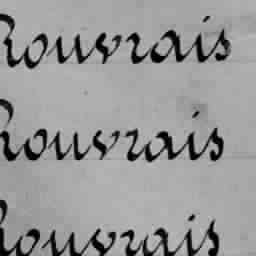 Rouvrais
Rouvrais
Rouvrais